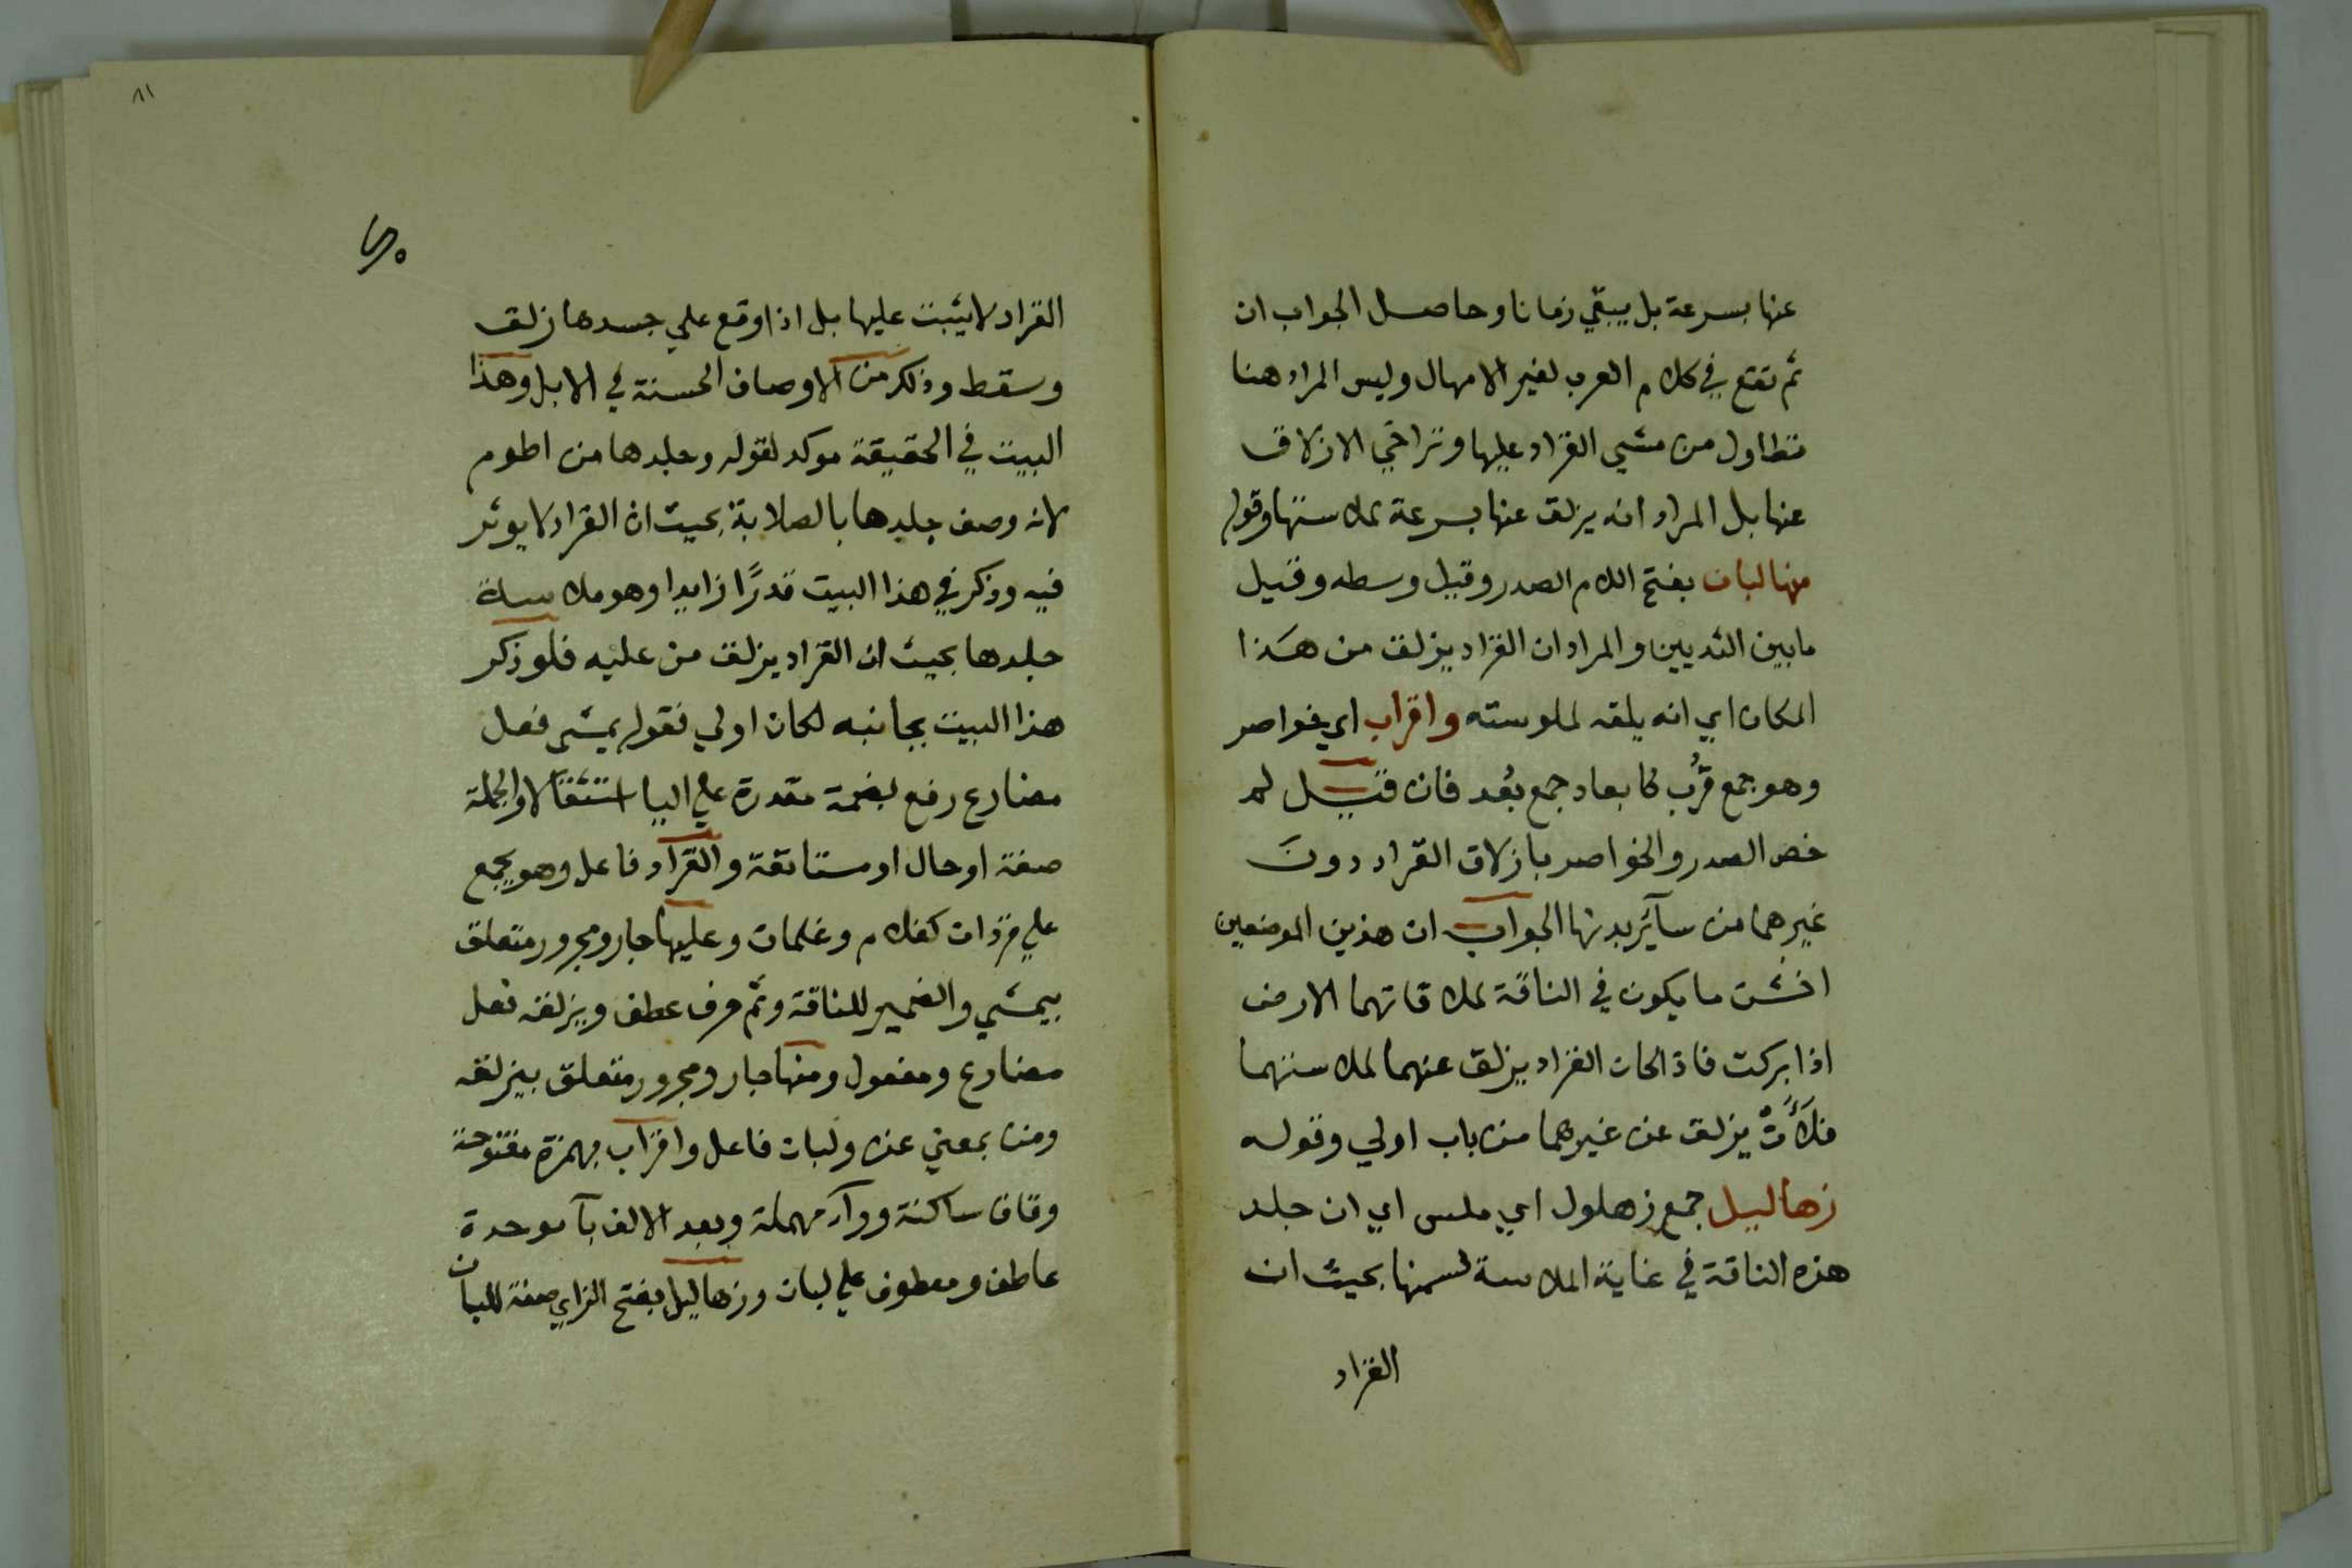 عنها بسرعة بل يبقي زمانا وحاصل الجواب ان
ثم تقع في كلام العرب لغير الامهال وليس المراد هنا
تطاول من مشي القراد عليها وتراخي الازلاق
عنها بل المراد انه يزلق عنها بسرعة لملاستها وقوله
منها لبان بفتح اللام الصدر وقيل وسطه وقيل
ما بين الثديين والمراد ان القراد يزلق من هذا
المكان اي انه يلقه لملوسته واقراب اي خواصر
وهو جمع قرُب كابعاد جمع بُعد فان قيل لم
خص الصدر والخواصر بازلاق القراد دون
غيرهما من سآئر بدنها الجواب ان هذين الموضعين
اخشن ما يكون في الناقة لملاقاتهما الارض
اذا بركت فاذا كان القراد يزلق عنهما لملاستهما
يزلق عن غيرهما من باب اولي وقوله
زهاليل جمع زهلول اي ملس اي ان جلد
هذه الناقة في غاية الملاسة لسمنها بحيث ان
القراد
٨١
القراد لا يثبت عليها بل اذا وقع علي جسدها زلق
وسقط وذلك من الاوصاف الحسنة في الابل وهذا
البيت في الحقيقة موكد لقوله وجلدها من اطوم
لانه وصف جلدها بالصلابة بحيث ان القراد لا يوثر
فيه وذكر في هذا البيت قدرًا زايدا وهو ملاسة
جلدها بحيث ان القراد يزلق من عليه فلو ذكر
هذا البيت بجانبه لكان اولي فقوله يمشي فعل
مضارع رفع بضمة مقدرة علي اليا استثقالا والجملة
صفة او حال او مستانفة والقراد فاعل وهو يجمع
علي قردان كغلام وغلمان وعليها جار ومجرور متعلق
بيمشي والضمير للناقة وثم حرف عطف ويزلقه فعل
مضارع ومفعول ومنها جار ومجرور متعلق بيزلقه
ومن بمعني عن ولبان فاعل واقراب بهمزة مفتوحة
وقاف ساكنة وراء مهملة وبعد الالف بآ موحدة
عاطف ومعطوف علي لبان وزهاليل بفتح الزاي صفة للبان